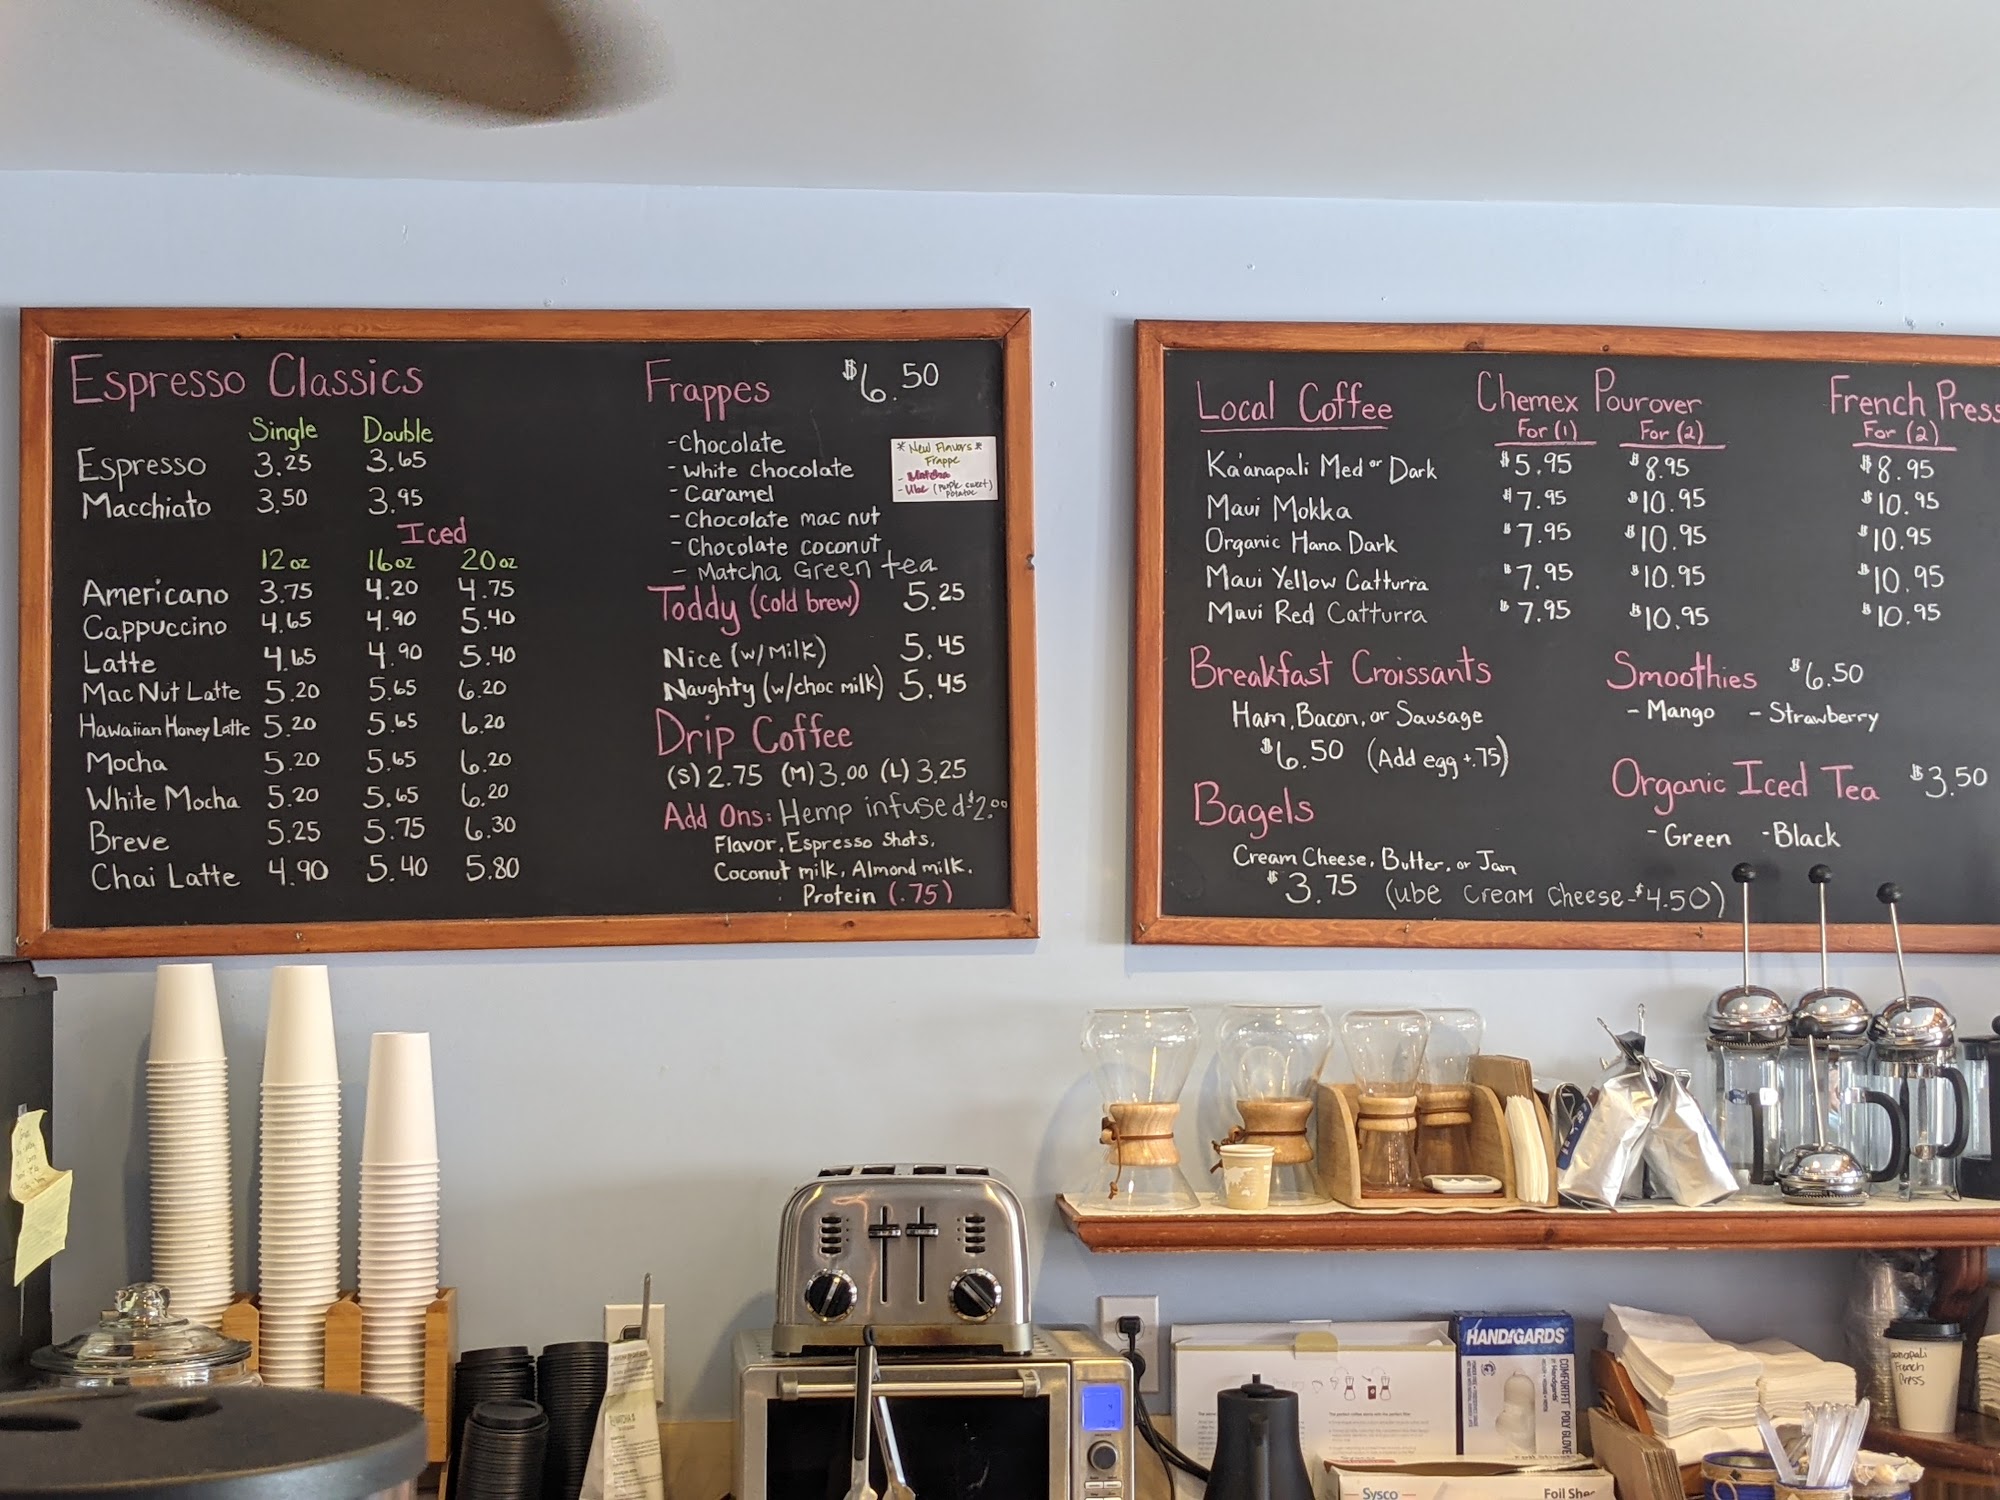 Espresso Classics
Single Double
Espresso 3.25 3.65
Macchiato 3.50 3.95
Iced
12oz 16oz 20oz
Americano 3.75 4.20 4.75
Cappuccino 4.65 4.90 5.40
Latte 4.65 4.90 5.40
Mac Nut Latte 5.20 5.65 6.20
Hawaiian Honey Latte 5.20 5.65 6.20
Mocha 5.20 5.65 6.20
White Mocha 5.20 5.65 6.20
Breve 5.25 5.75 6.30
Chai Latte 4.90 5.40 5.80
Frappes $6.50
- Chocolate
- White chocolate
- Caramel
- Chocolate mac nut
- Chocolate coconut
- Matcha Green tea
* New Flavors *
Frappe
- Matcha
- Ube (purple sweet)
potatoe
Toddy (cold brew) 5.25
Nice (w/ Milk) 5.45
Naughty (w/choc milk) 5.45
Drip Coffee
(S) 2.75 (M) 3.00 (L) 3.25
Add Ons: Hemp infused-$2.00
Flavor, Espresso shots,
Coconut milk, Almond milk,
Protein (.75)
Local Coffee Chemex Pourover French Press
For (1) For (2) For (2)
Ka'anapali Med or Dark $5.95 $8.95 $8.95
Maui Mokka $7.95 $10.95 $10.95
Organic Hana Dark $7.95 $10.95 $10.95
Maui Yellow Catturra $7.95 $10.95 $10.95
Maui Red Catturra $7.95 $10.95 $10.95
Breakfast Croissants
Ham, Bacon, or Sausage
$6.50 (Add egg +.75)
Bagels
Cream Cheese, Butter, or Jam
$3.75 (ube cream cheese-$4.50)
Smoothies $6.50
- Mango - Strawberry
Organic Iced Tea $3.50
- Green - Black
HANDGARDS
COMFORTFIT
POLY GLOVE
Sysco
Foil
French
Press